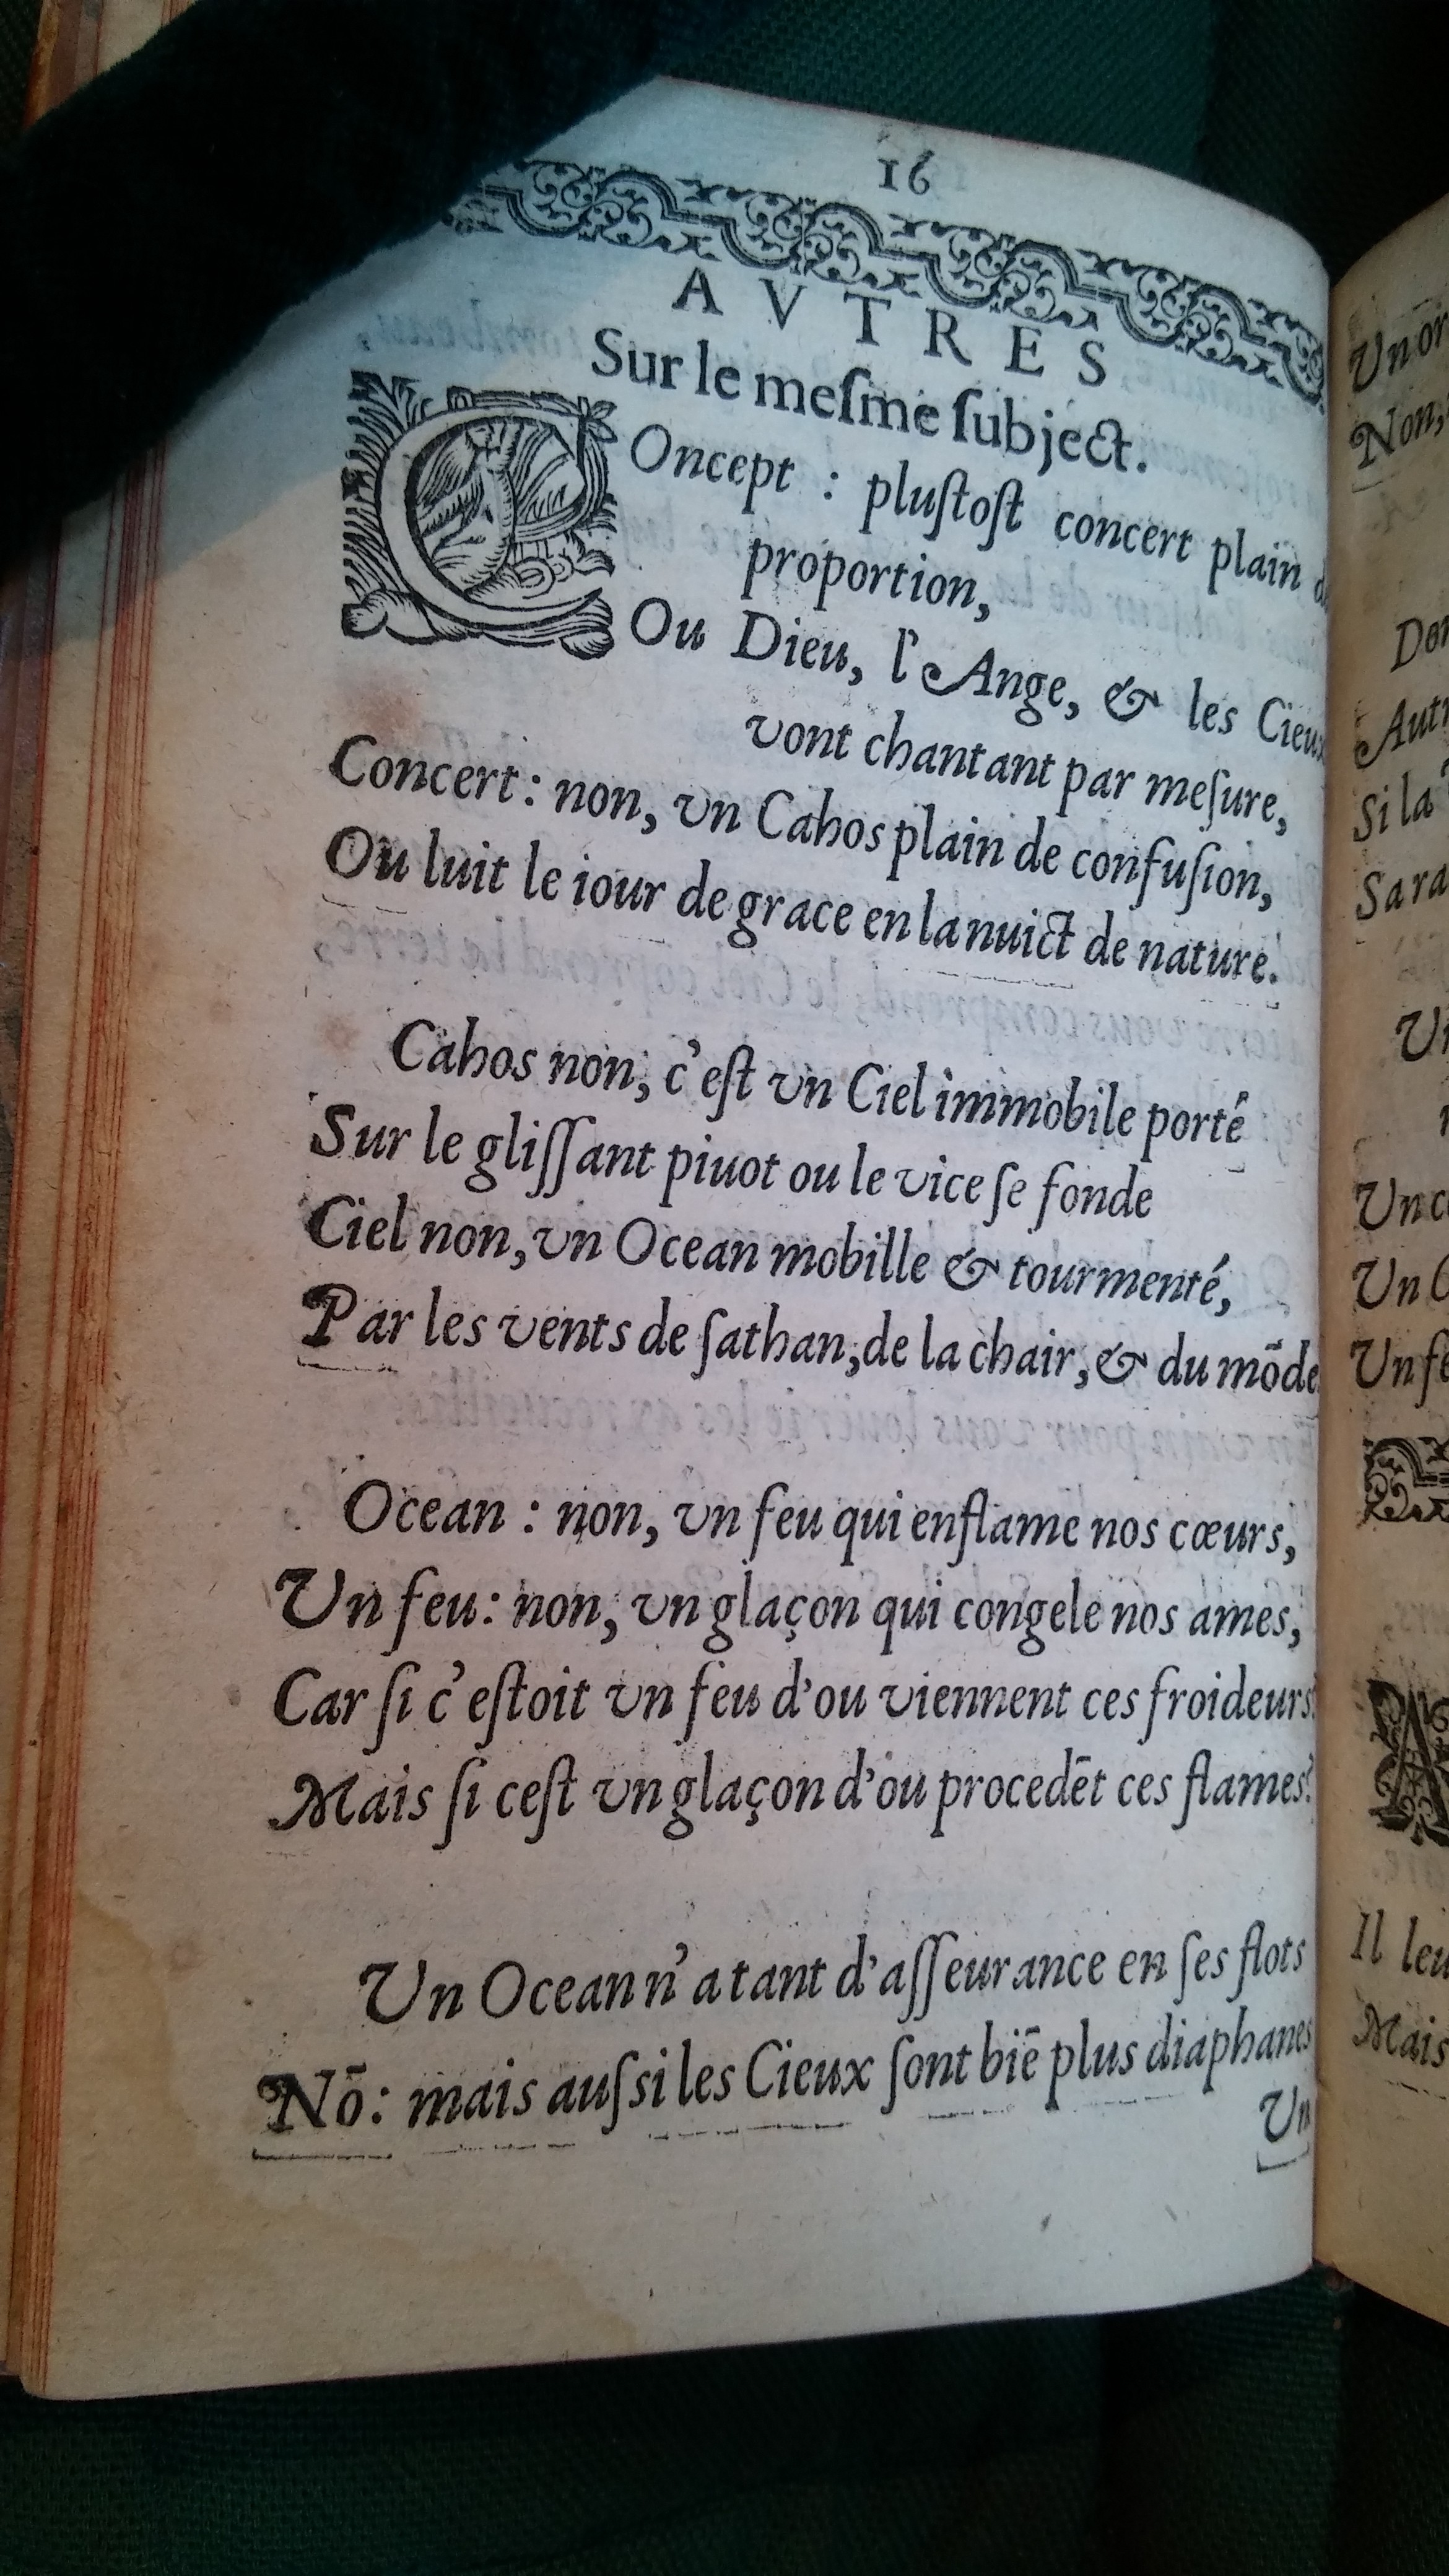 16
AVTRES
Sur le meſme ſubject.
COncept : pluſtoſt concert plain
proportion,
Ou Dieu, l'Ange, & les Cieux
vont chantant par meſure,
Concert : non, vn Cahos plain de confuſion,
Ou luit le iour de grace en la nuict de nature.
Cahos non, c'eſt vn Ciel immobile porté
Sur le gliſſant piuot ou le vice ſe fonde
Ciel non, vn Ocean mobille & tourmenté,
Par les vents de ſathan, de la chair, & du mōde
Ocean : non, vn feu qui enflame nos cœurs,
Vn feu : non, vn glaçon qui congele nos ames,
Car ſi c'eſtoit vn feu d'ou viennent ces froideurs?
Mais ſi ceſt vn glaçon d'ou procedēt ces flames?
Vn Ocean n'a tant d'aſſeurance en ſes flots
Nō: mais auſsi les Cieux ſont biē plus diaphanes
Vn
Non,
Autr
Si la
Sara
Il leu
Mais